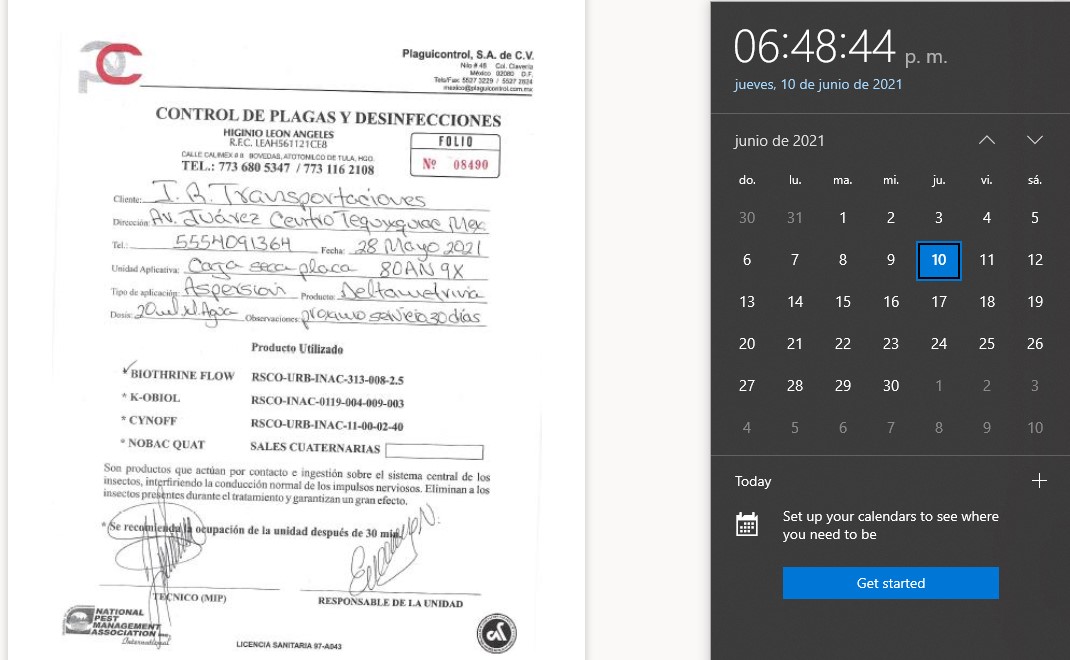 PC
Plaguicontrol, S.A. de C.V.
Nilo # 48 Col. Clavería
México 02080 D.F.
Tels/Fax: 5527 3229 / 5527 2624
mexico@plaguicontrol.com.mx
CONTROL DE PLAGAS Y DESINFECCIONES
HIGINIO LEON ANGELES
R.F.C. LEAH561121CE8
CALLE CALIMEX # 8 BOVEDAS, ATOTONILCO DE TULA, HGO.
TEL.: 773 680 5347 / 773 116 2108
FOLIO
Nº 08490
Cliente: I. R. Transportaciones
Dirección: Av. Juárez Centro Tequixquiac Mex
Tel.: 5554091364 Fecha: 28 Mayo 2021
Unidad Aplicativa: Caja seca placa 80AN9X
Tipo de aplicación: Aspersion Producto: Deltametrivia
Dosis: 20ml xl. Agua Observaciones: proximo servicio 30 días
Producto Utilizado
BIOTHRINE FLOW RSCO-URB-INAC-313-008-2.5
* K-OBIOL RSCO-INAC-0119-004-009-003
* CYNOFF RSCO-URB-INAC-11-00-02-40
* NOBAC QUAT SALES CUATERNARIAS
Son productos que actúan por contacto e ingestión sobre el sistema central de los
insectos, interfiriendo la conducción normal de los impulsos nerviosos. Eliminan a los
insectos presentes durante el tratamiento y garantizan un gran efecto.
* Se recomienda la ocupación de la unidad después de 30 min.
TECNICO (MIP) RESPONSABLE DE LA UNIDAD
NATIONAL
PEST
MANAGEMENT
ASSOCIATION Inc.
International
LICENCIA SANITARIA 97-A043
06:48:44 p. m.
jueves, 10 de junio de 2021
junio de 2021
do. lu. ma. mi. ju. vi. sá.
30 31 1 2 3 4 5
6 7 8 9 10 11 12
13 14 15 16 17 18 19
20 21 22 23 24 25 26
27 28 29 30 1 2 3
4 5 6 7 8 9 10
Today
Set up your calendars to see where
you need to be
Get started